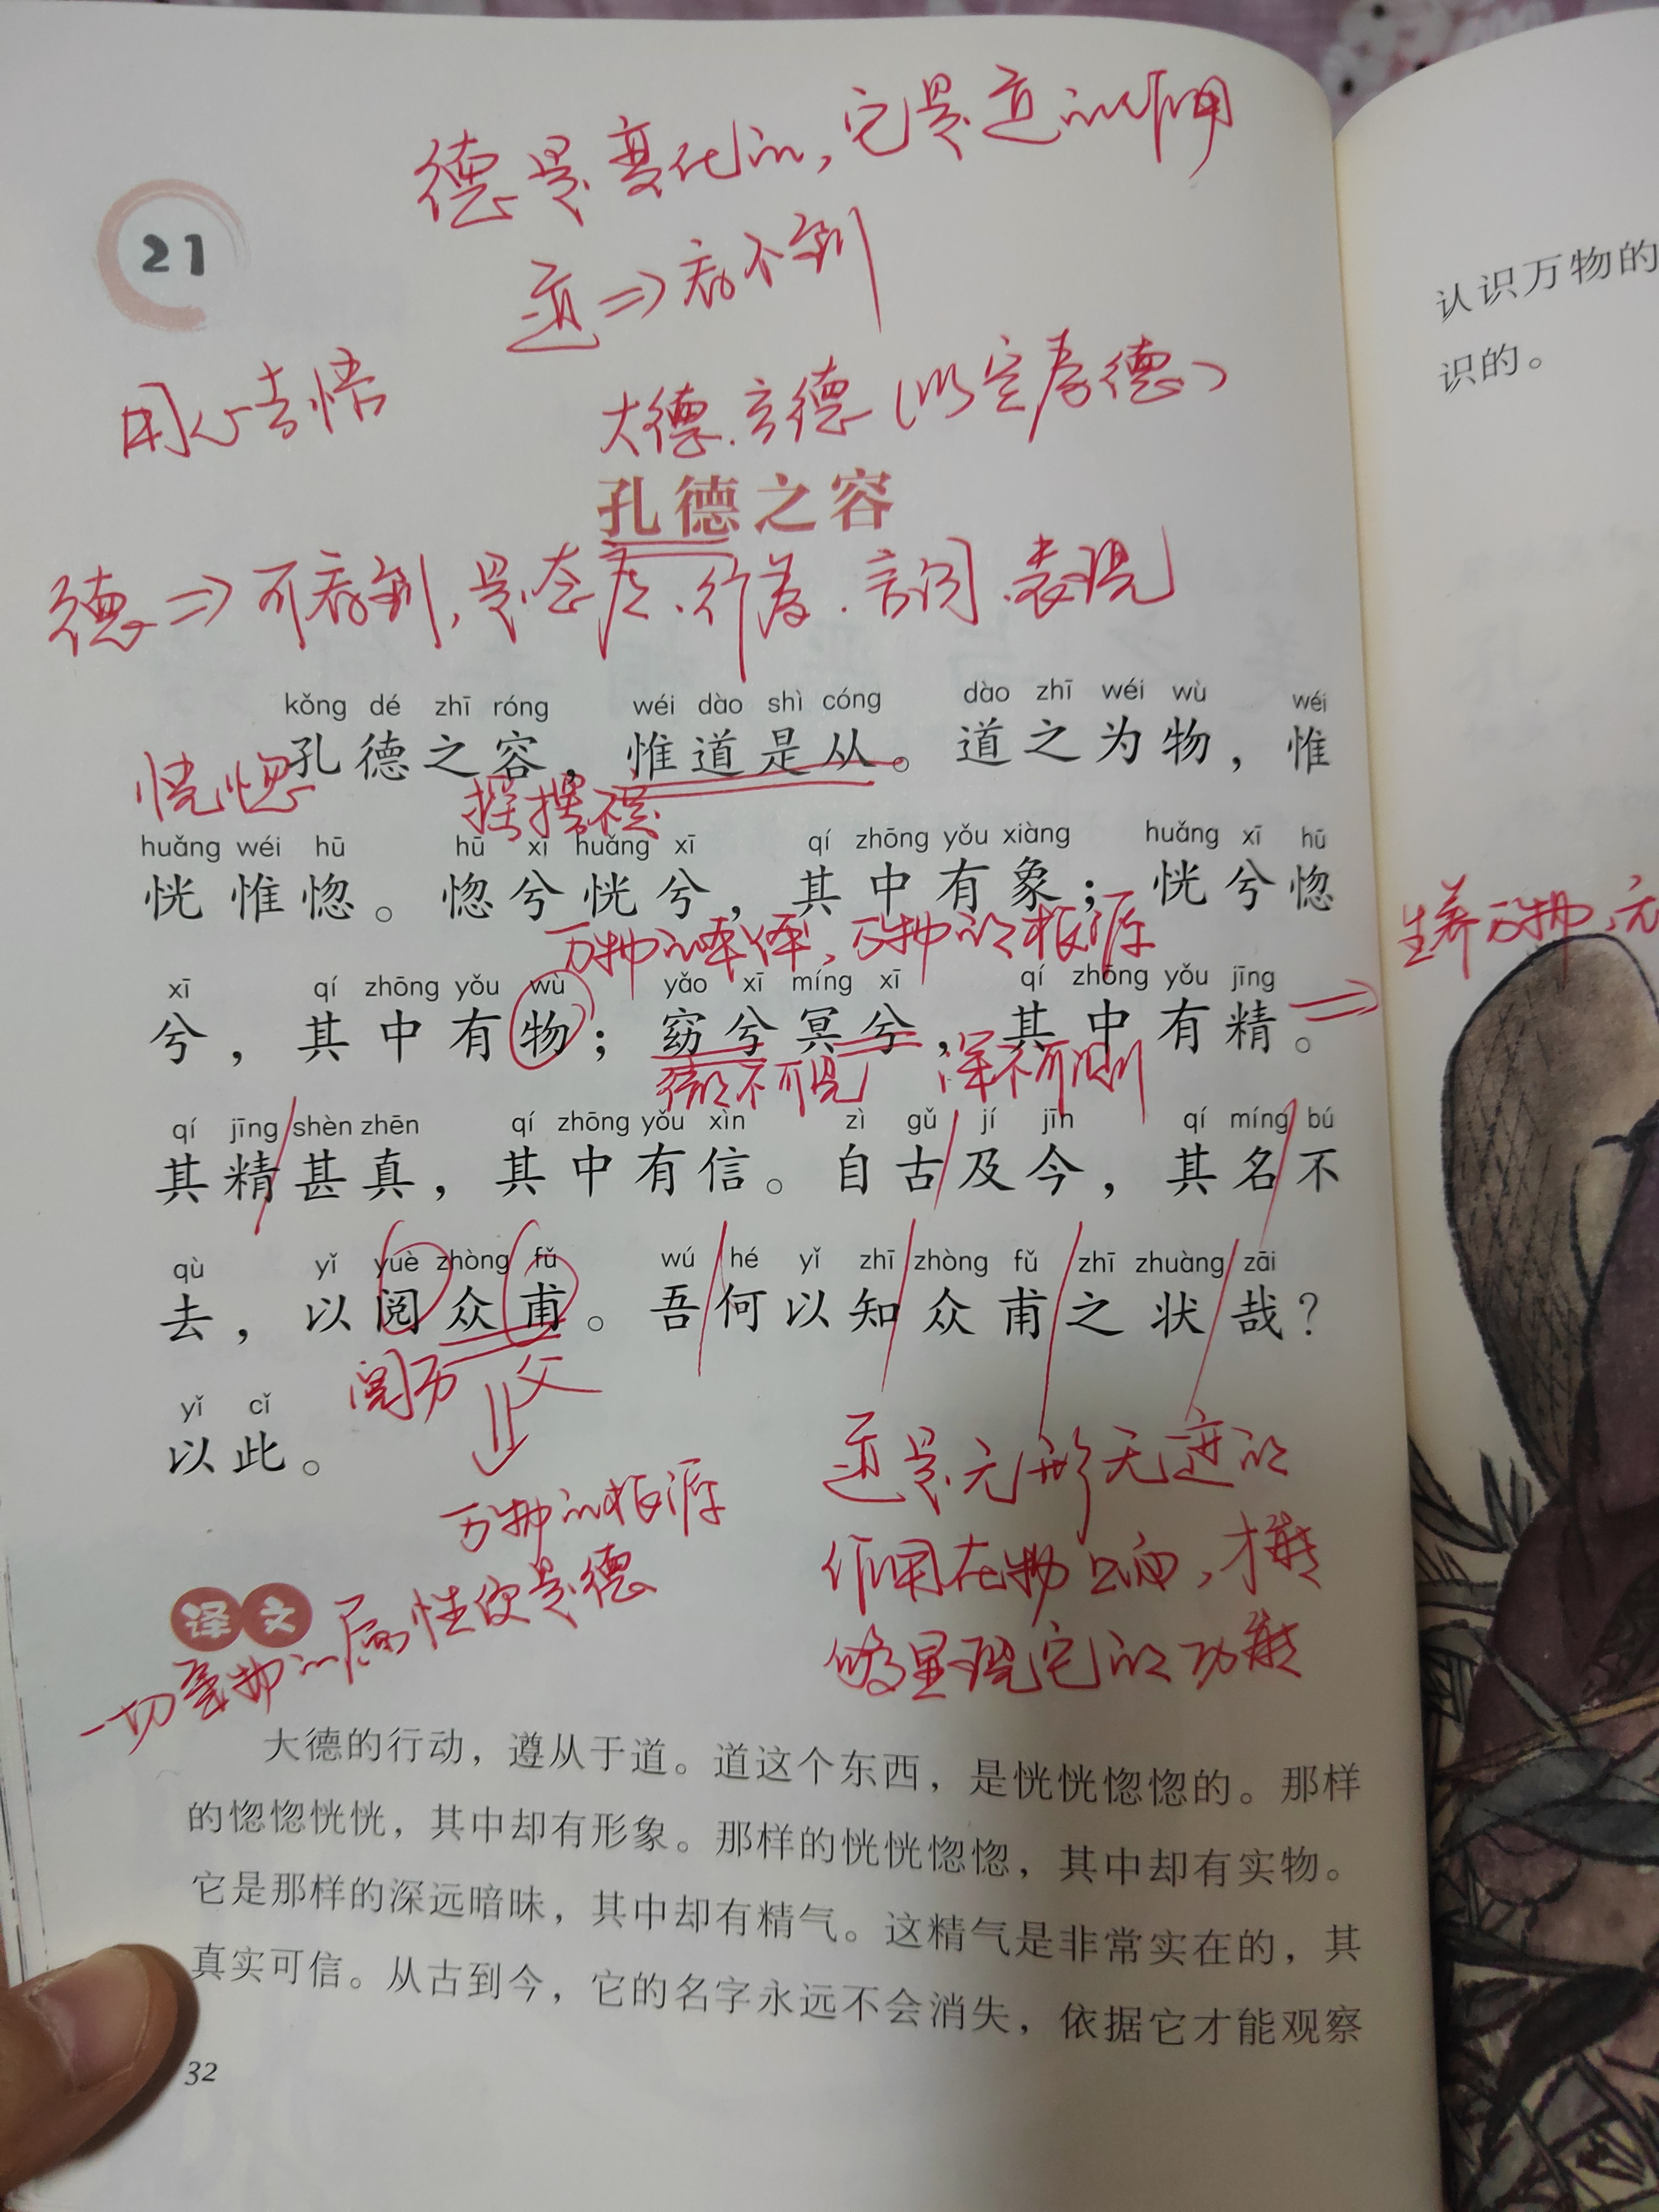 德是变化的,它是道的作用
21
道⇒看不到
用心去悟
大德.玄德(以空为德)
孔德之容
德⇒可看到,是态度、行为、言词、表现
kǒng dé zhī róng wéi dào shì cóng dào zhī wéi wù wéi
孔德之容,惟道是从。道之为物,惟
恍惚 摇摆不定
huǎng wéi hū hū xī huǎng xī qí zhōng yǒu xiàng huǎng xī hū
恍惟惚。惚兮恍兮,其中有象;恍兮惚
万物的本体,万物的根源
xī qí zhōng yǒu wù yǎo xī míng xī qí zhōng yǒu jīng
兮,其中有物;窈兮冥兮,其中有精。⇒
微不可见 深不可测
qí jīng shèn zhēn qí zhōng yǒu xìn zì gǔ jí jīn qí míng bú
其精/甚真,其中有信。自古/及今,其名/不
qù yǐ yuè zhòng fǔ wú hé yǐ zhī zhòng fǔ zhī zhuàng zāi
去,以阅众甫。吾/何以知/众甫/之状/哉?
阅历 父
yǐ cǐ
以此。
万物的根源
道是无形无迹的
作用在物上面,才能
够显现它的功能
译文
一切事物的属性便是德
大德的行动,遵从于道。道这个东西,是恍恍惚惚的。那样
的惚惚恍恍,其中却有形象。那样的恍恍惚惚,其中却有实物。
它是那样的深远暗昧,其中却有精气。这精气是非常实在的,其
真实可信。从古到今,它的名字永远不会消失,依据它才能观察
32
认识万物的
识的。
生养万物,元